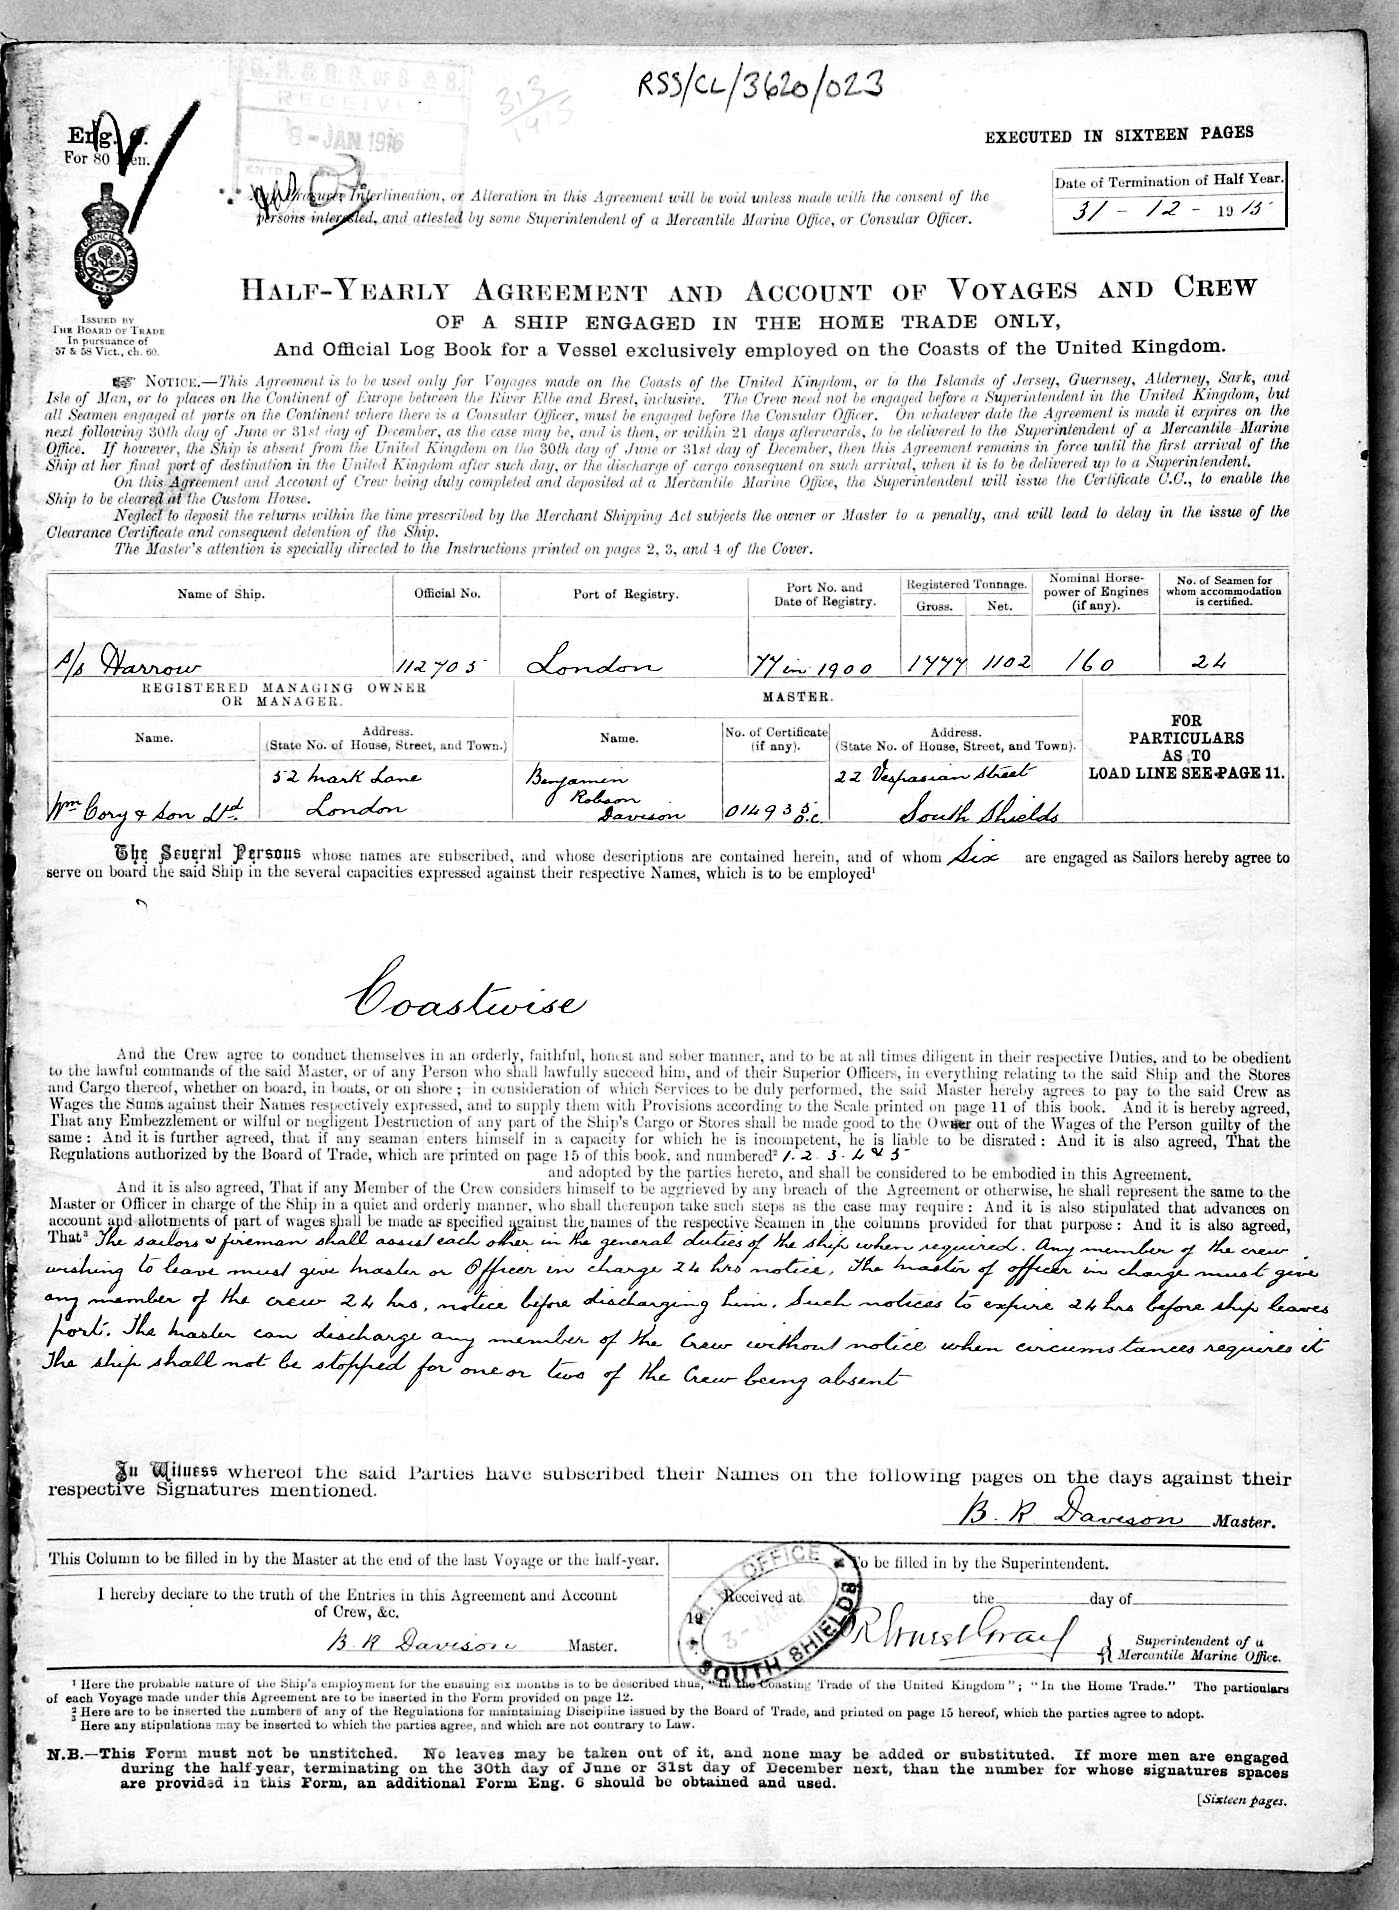 RSS/CL/3620/023
G.R. & R.O. of S & S.
RECEIVED
8 - JAN 1916
313/1915
Eng. 6.
For 80 Men.
EXECUTED IN SIXTEEN PAGES
Date of Termination of Half Year.
31 - 12 - 1915
Any Erasure, Interlineation, or Alteration in this Agreement will be void unless made with the consent of the
persons interested, and attested by some Superintendent of a Mercantile Marine Office, or Consular Officer.
ISSUED BY
THE BOARD OF TRADE
In pursuance of
57 & 58 Vict., ch. 60.
HALF-YEARLY AGREEMENT AND ACCOUNT OF VOYAGES AND CREW
OF A SHIP ENGAGED IN THE HOME TRADE ONLY,
And Official Log Book for a Vessel exclusively employed on the Coasts of the United Kingdom.
☞ NOTICE.—This Agreement is to be used only for Voyages made on the Coasts of the United Kingdom, or to the Islands of Jersey, Guernsey, Alderney, Sark, and
Isle of Man, or to places on the Continent of Europe between the River Elbe and Brest, inclusive. The Crew need not be engaged before a Superintendent in the United Kingdom, but
all Seamen engaged at ports on the Continent where there is a Consular Officer, must be engaged before the Consular Officer. On whatever date the Agreement is made it expires on the
next following 30th day of June or 31st day of December, as the case may be, and is then, or within 21 days afterwards, to be delivered to the Superintendent of a Mercantile Marine
Office. If however, the Ship is absent from the United Kingdom on the 30th day of June or 31st day of December, then this Agreement remains in force until the first arrival of the
Ship at her final port of destination in the United Kingdom after such day, or the discharge of cargo consequent on such arrival, when it is to be delivered up to a Superintendent.
On this Agreement and Account of Crew being duly completed and deposited at a Mercantile Marine Office, the Superintendent will issue the Certificate C.C., to enable the
Ship to be cleared at the Custom House.
Neglect to deposit the returns within the time prescribed by the Merchant Shipping Act subjects the owner or Master to a penalty, and will lead to delay in the issue of the
Clearance Certificate and consequent detention of the Ship.
The Master's attention is specially directed to the Instructions printed on pages 2, 3, and 4 of the Cover.
Name of Ship. Official No. Port of Registry. Port No. and Date of Registry. Registered Tonnage. Gross. Net. Nominal Horse-power of Engines (if any). No. of Seamen for whom accommodation is certified.
s/s Harrow 112705 London 77 in 1900 1777 1102 160 24
REGISTERED MANAGING OWNER OR MANAGER. MASTER.
Name. Address. (State No. of House, Street, and Town.) Name. No. of Certificate (if any). Address. (State No. of House, Street, and Town).
FOR PARTICULARS AS TO LOAD LINE SEE PAGE 11.
Wm Cory & Son Ltd. 52 Mark Lane London Benjamin Robson Davison 014935 O.C. 22 Vespasian Street South Shields
The Several Persons whose names are subscribed, and whose descriptions are contained herein, and of whom Six are engaged as Sailors hereby agree to
serve on board the said Ship in the several capacities expressed against their respective Names, which is to be employed¹
Coastwise
And the Crew agree to conduct themselves in an orderly, faithful, honest and sober manner, and to be at all times diligent in their respective Duties, and to be obedient
to the lawful commands of the said Master, or of any Person who shall lawfully succeed him, and of their Superior Officers, in everything relating to the said Ship and the Stores
and Cargo thereof, whether on board, in boats, or on shore; in consideration of which Services to be duly performed, the said Master hereby agrees to pay to the said Crew as
Wages the Sums against their Names respectively expressed, and to supply them with Provisions according to the Scale printed on page 11 of this book. And it is hereby agreed,
That any Embezzlement or wilful or negligent Destruction of any part of the Ship's Cargo or Stores shall be made good to the Owner out of the Wages of the Person guilty of the
same: And it is further agreed, that if any seaman enters himself in a capacity for which he is incompetent, he is liable to be disrated: And it is also agreed, That the
Regulations authorized by the Board of Trade, which are printed on page 15 of this book, and numbered² 1. 2. 3. 4 & 5
and adopted by the parties hereto, and shall be considered to be embodied in this Agreement.
And it is also agreed, That if any Member of the Crew considers himself to be aggrieved by any breach of the Agreement or otherwise, he shall represent the same to the
Master or Officer in charge of the Ship in a quiet and orderly manner, who shall thereupon take such steps as the case may require: And it is also stipulated that advances on
account and allotments of part of wages shall be made as specified against the names of the respective Seamen in the columns provided for that purpose: And it is also agreed,
That³ The sailors & fireman shall assist each other in the general duties of the ship when required. Any member of the crew
wishing to leave must give Master or Officer in charge 24 hrs notice. The Master of officer in charge must give
any member of the crew 24 hrs. notice before discharging him. Such notices to expire 24 hrs before ship leaves
port. The Master can discharge any member of the Crew without notice when circumstances requires it
The ship shall not be stopped for one or two of the Crew being absent
In Witness whereof the said Parties have subscribed their Names on the following pages on the days against their
respective Signatures mentioned.
B. R Davison Master.
This Column to be filled in by the Master at the end of the last Voyage or the half-year.
I hereby declare to the truth of the Entries in this Agreement and Account
of Crew, &c.
B. R Davison Master.
To be filled in by the Superintendent.
Received at the day of
19
M. M. OFFICE
3 - JAN
SOUTH SHIELDS
Superintendent of a
Mercantile Marine Office.
¹ Here the probable nature of the Ship's employment for the ensuing six months is to be described thus, "In the Coasting Trade of the United Kingdom"; "In the Home Trade." The particulars
of each Voyage made under this Agreement are to be inserted in the Form provided on page 12.
² Here are to be inserted the numbers of any of the Regulations for maintaining Discipline issued by the Board of Trade, and printed on page 15 hereof, which the parties agree to adopt.
³ Here any stipulations may be inserted to which the parties agree, and which are not contrary to Law.
N.B.—This Form must not be unstitched. No leaves may be taken out of it, and none may be added or substituted. If more men are engaged
during the half-year, terminating on the 30th day of June or 31st day of December next, than the number for whose signatures spaces
are provided in this Form, an additional Form Eng. 6 should be obtained and used.
[Sixteen pages.